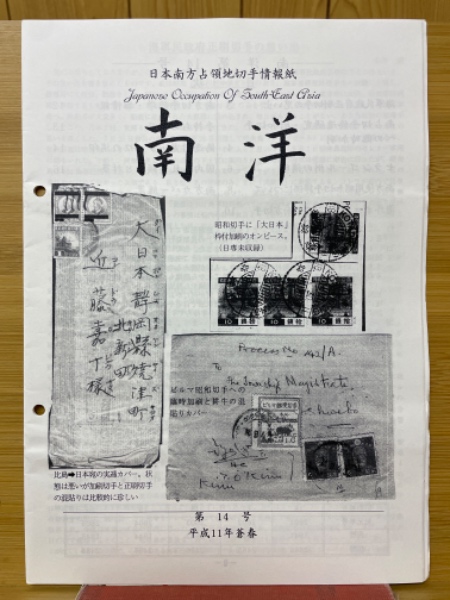 日本南方占領地切手情報紙
Japanese Occupation Of South-East Asia
南洋
昭和切手に「大日本」
枠付加刷のオンピース。
(日専未収録)
大日本静岡縣焼津町
北新田
近藤嘉十様
10 錢
10 錢
10 錢
To
The Township Magistrate
ビルマ昭和切手への
臨時加刷と耕牛の混
貼りカバー
比島➡日本宛の実逓カバー。状
態は悪いが加刷切手と正刷切手
の混貼りは比較的に珍しい
第 14 号
平成11年蒼春